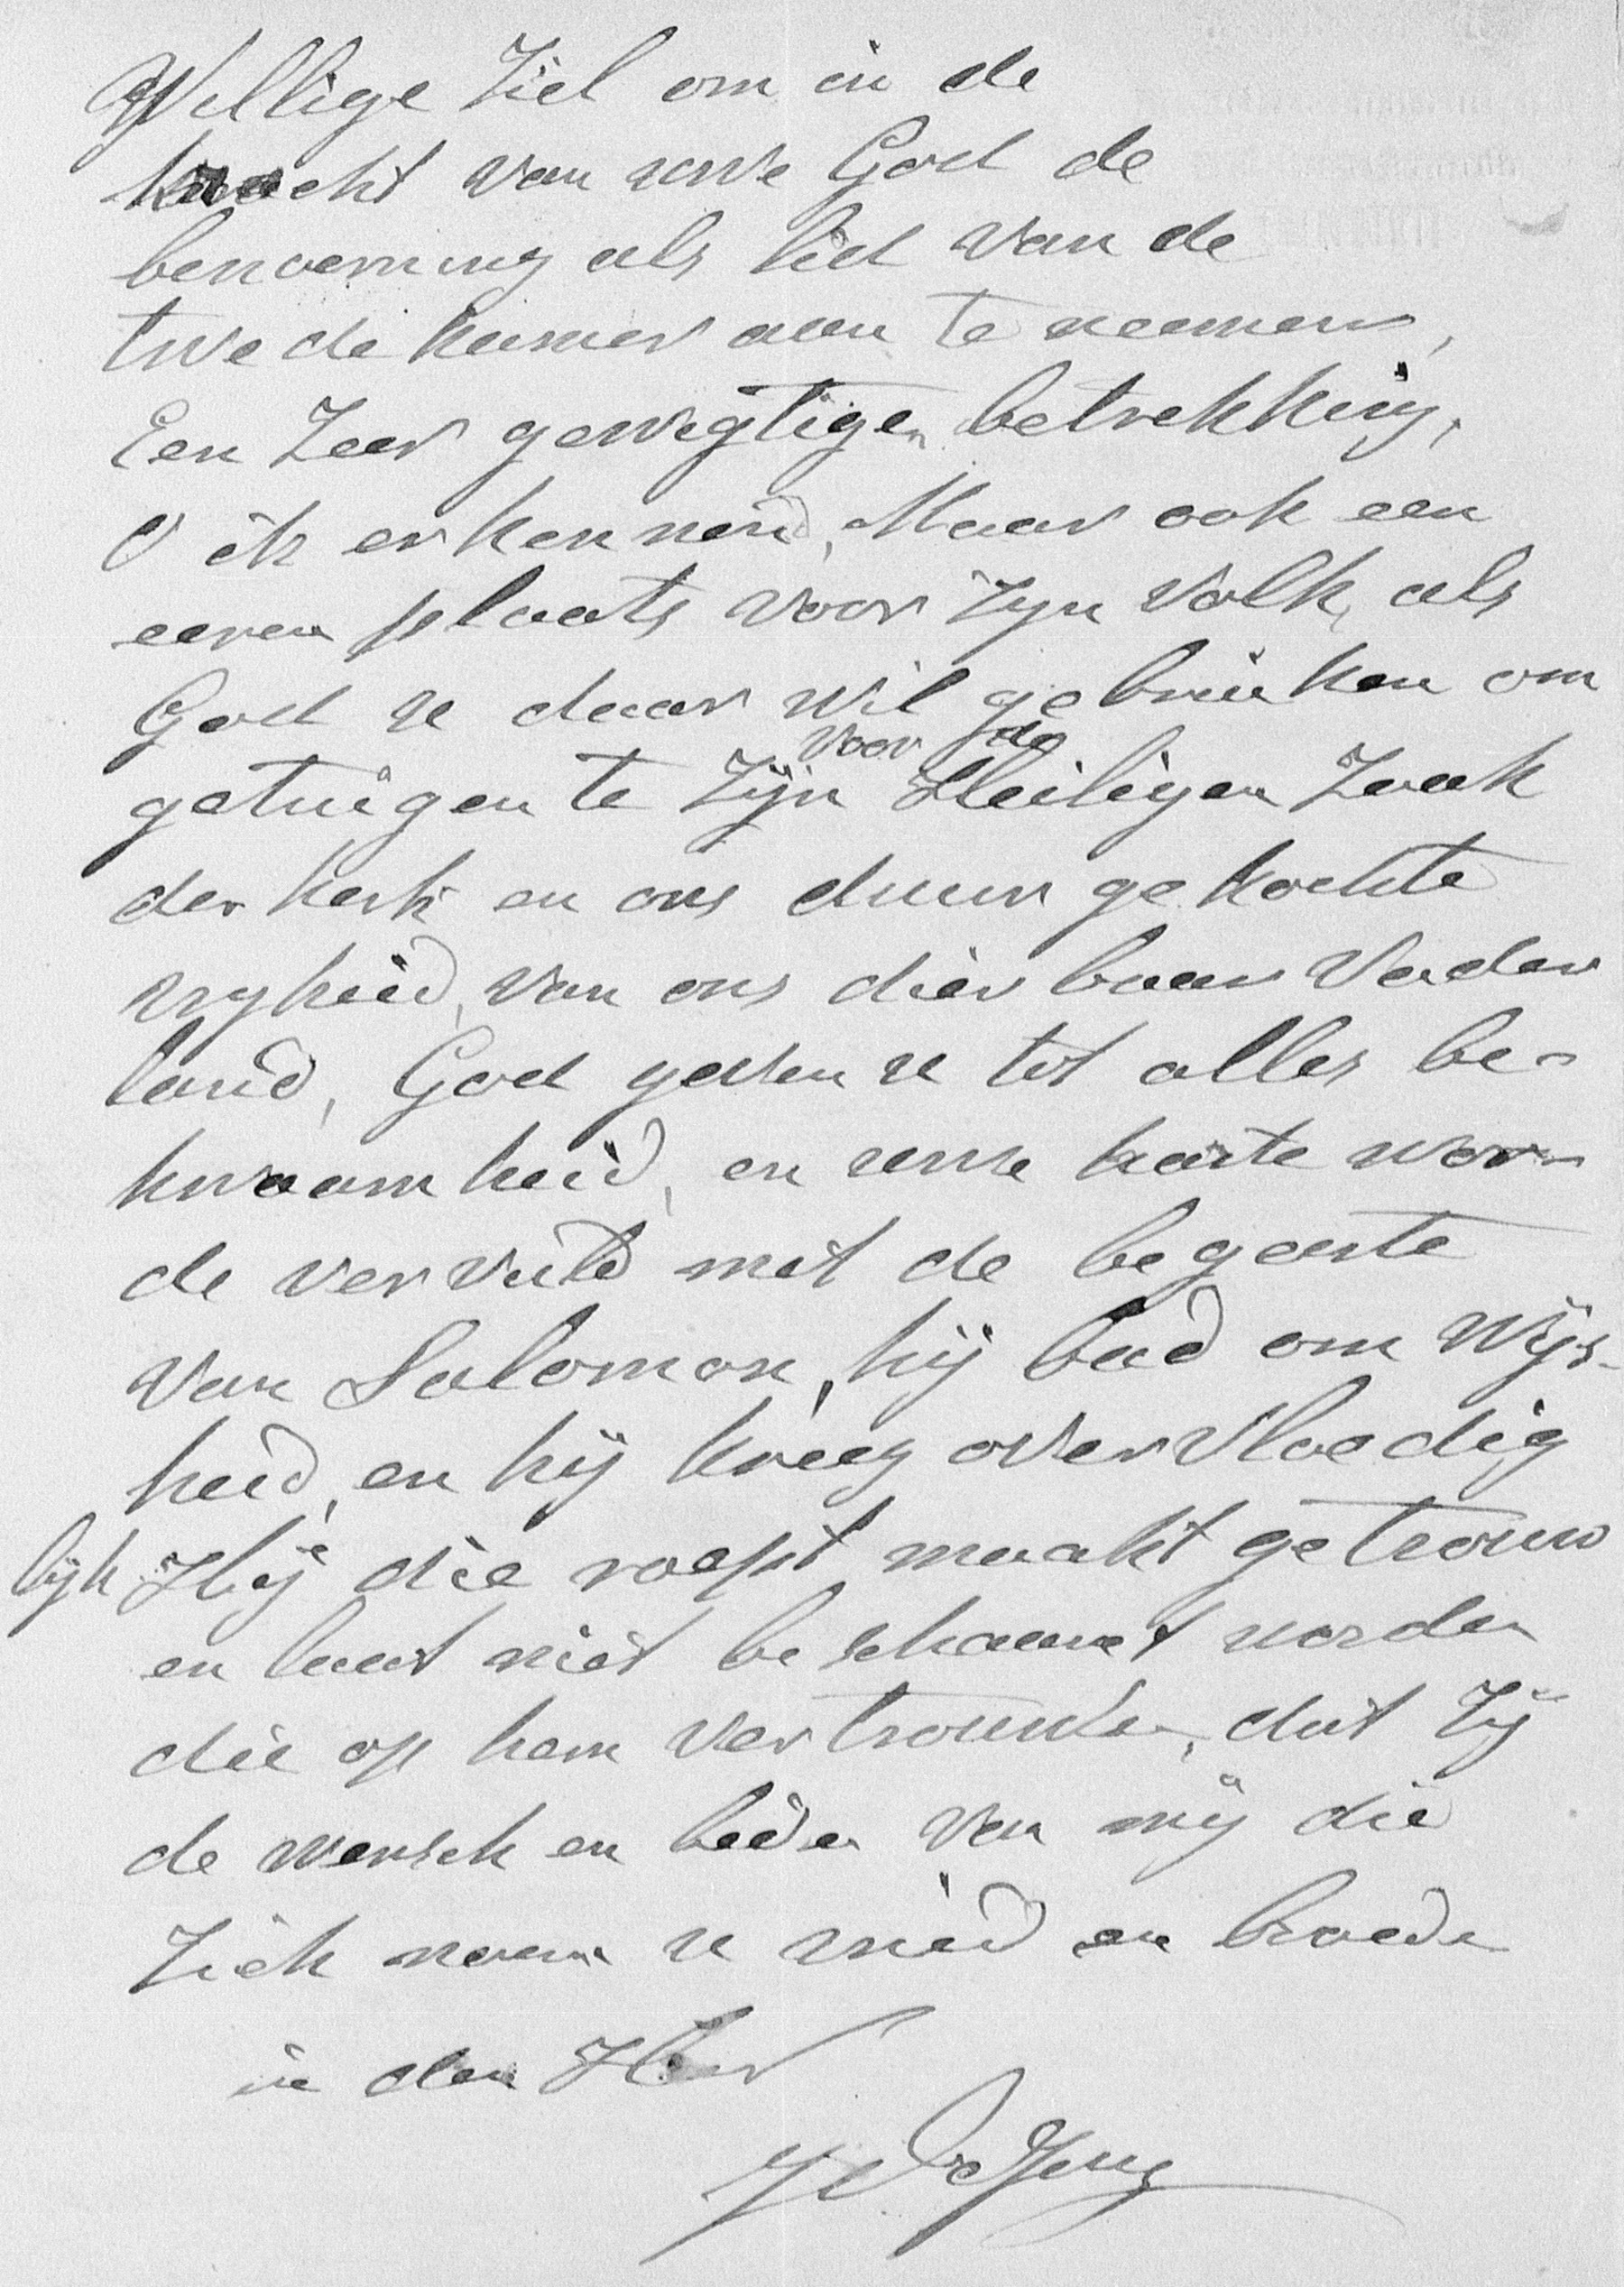 Willige Ziel om in de
kracht van uwe God de
benoeming als lid van de
twede kamer aan te neemen,
Een Zeer gewigtigen betrekking,
O ik erkennend, Maar ook een
eeren plaats voor Zyn Volk, als
God u daar wil gebruiken om
voor de
getuigen te Zijn Heiligen Zaak
der kerk en ons duur gekochte
vryheid, van ons dierbaar Vader
land, God geeven u tot alles be-
kwaamheid, en uwe harte wor-
de vervuld met de begeerte
van Salomon, hij bad om Wijs-
heid, en hij kreeg overvloedig
lijk Hij die roept maakt getrouw
en laat niet beschaamt worden
die op hem vertrouwen, dit Zij
de wensch en beden van mij die
Zich noem u vriend en broeder
in den Heer